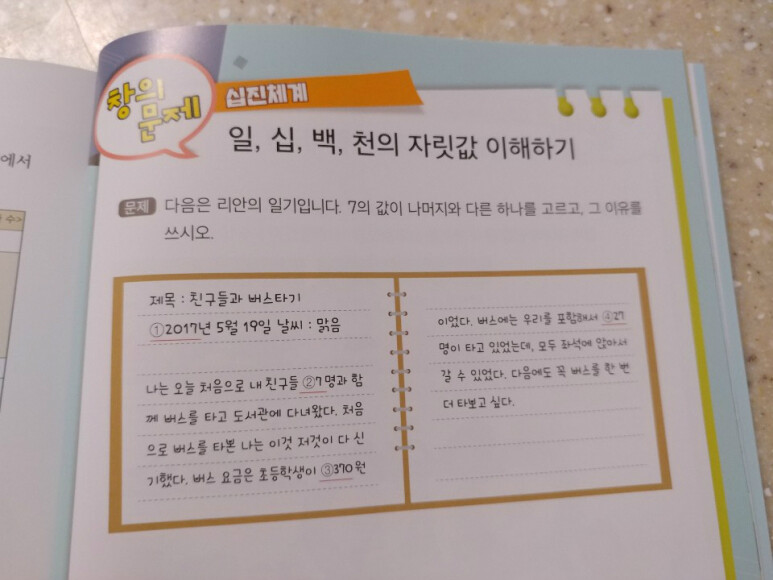 창의
문제
십진체계
일, 십, 백, 천의 자릿값 이해하기
문제 다음은 리안의 일기입니다. 7의 값이 나머지와 다른 하나를 고르고, 그 이유를
쓰시오.
제목 : 친구들과 버스타기
①2017년 5월 19일 날씨 : 맑음
나는 오늘 처음으로 내 친구들 ②7명과 함
께 버스를 타고 도서관에 다녀왔다. 처음
으로 버스를 타본 나는 이것 저것이 다 신
기했다. 버스 요금은 초등학생이 ③370원
이었다. 버스에는 우리를 포함해서 ④27
명이 타고 있었는데, 모두 좌석에 앉아서
갈 수 있었다. 다음에도 꼭 버스를 한 번
더 타보고 싶다.
에서
수>